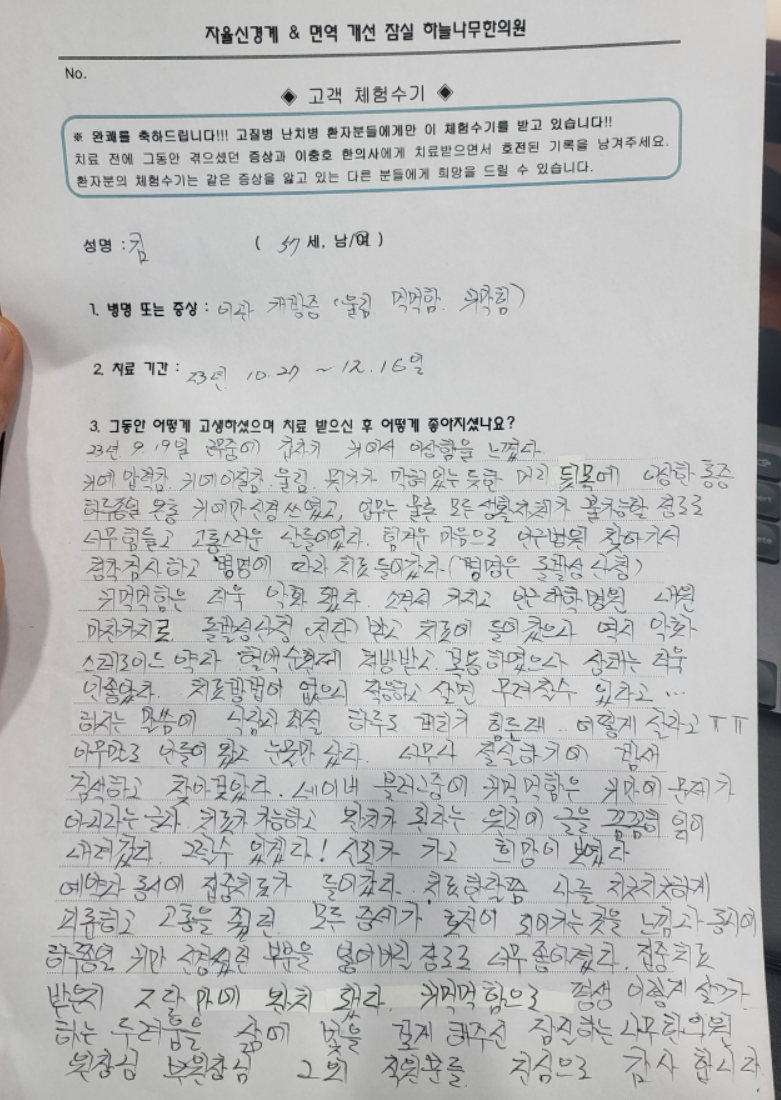 자율신경계 & 면역 개선 잠실 하늘나무한의원
No.
◈ 고객 체험수기 ◈
※ 완쾌를 축하드립니다!!! 고질병 난치병 환자분들에게만 이 체험수기를 받고 있습니다!!
치료 전에 그동안 겪으셨던 증상과 이충호 한의사에게 치료받으면서 호전된 기록을 남겨주세요.
환자분의 체험수기는 같은 증상을 앓고 있는 다른 분들에게 희망을 드릴 수 있습니다.
성명 : 김 ( 57 세, 남/여 )
1. 병명 또는 증상 : 이관 개방증 (울림. 먹먹함. 귀막힘)
2. 치료 기간 : 23년 10.27 ~ 12.16일
3. 그동안 어떻게 고생하셨으며 치료 받으신 후 어떻게 좋아지셨나요?
23년 9.19일 근무중에 갑자기 귀에서 이상함을 느꼈다.
귀에 압력감. 귀에 이질감. 울림. 뭔가가 막혀있는 듯한 머리 뒷목에 이상한 통증
하루종일 온통 귀에만 신경쓰였고, 업무는 물론 모든 생활자체가 불가능할 정도로
너무 힘들고 고통스러운 나날이었다. 힘겨운 마음으로 병원 찾아가서
청각검사하고 병명에 따라 치료 들어갔다. (병명은 돌발성난청)
귀먹먹함은 더욱 악화 됐다. 소견서 가지고 대학병원 내원
마찬가지로 돌발성난청 진단 받고 치료에 들어갔으나 역시 악화
스테로이드 약과 혈액순환제 처방받고 복용하였으나 상태는 더욱
치료방법이 없으니 적응하고 살면 무뎌질수 있다고 ...
하시는 말씀에 낙심 하루도 버티기 힘든데.. 어떻게 살라고 ㅠㅠ
눈물만 났다. 너무나 절실하기에 검색
검색하고 찾아보았다. 네이버 블로그중에 귀먹먹함은 귀만의 문제가
아니라는 글과 치료가 가능하고 완치가 된다는 원리에 글을 꼼꼼히 읽어
내려갔다. 그럴수 있겠다! 신뢰가 가고 희망이 보였다
예약과 동시에 집중치료가 들어갔다. 치료한달쯤 나를 지긋지긋하게
괴롭히고 고통을 줬던 모든 증세가 호전이 되어가는 것을 느낌과 동시에
하루종일 귀만 신경썼던 부분을 잊어버릴 정도로 너무 좋아졌다. 집중치료
받은지 2달 만에 완치 됐다. 귀먹먹함으로 평생 이렇게 살까
하는 두려움을 삶에 빛을 갖게 해주신 잠실하늘나무한의원
원장님 부원장님 그외 직원분들. 진심으로 감사 합니다.